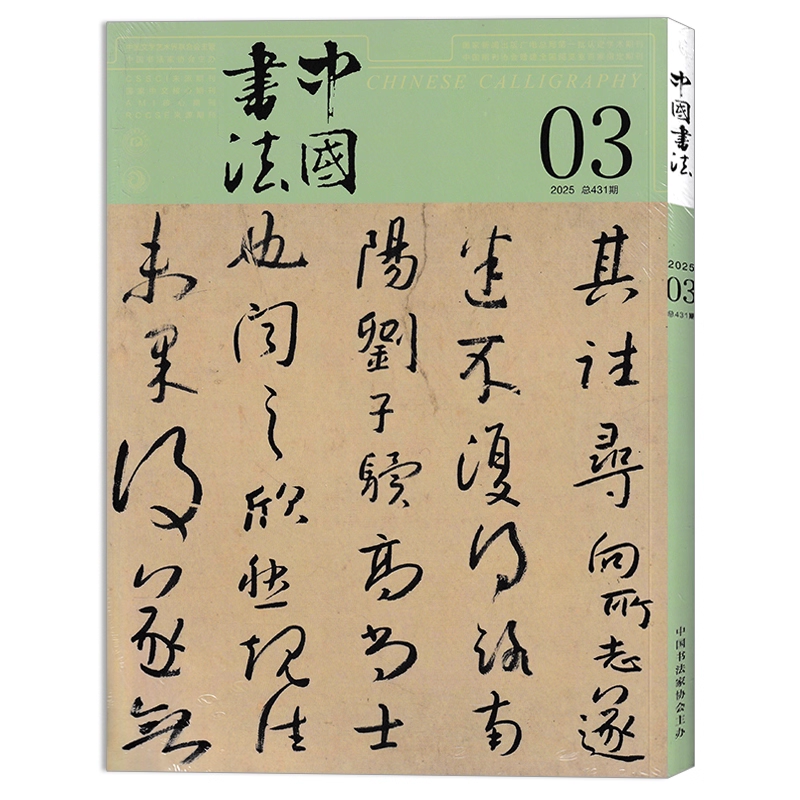 中國書法
CHINESE CALLIGRAPHY
03
2025 总431期
其往尋向所志遂
迷不復得路南
陽劉子驥高尚士
也聞之欣然規往
未果後遂無
中國書法
2025
03
总431期
中国书法家协会主办